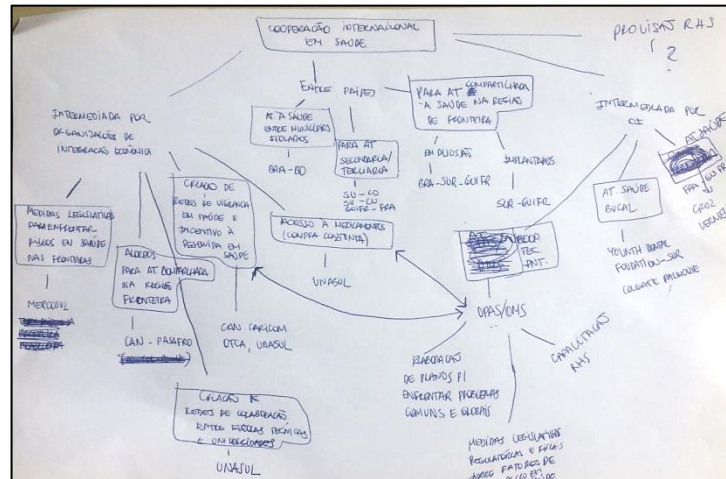 COOPERAÇÃO INTERNACIONAL
EM SAÚDE
PROVISÃO RHS
?
ENTRE PAÍSES
INTERMEDIADA POR
ORGANIZAÇÕES DE
INTEGRAÇÃO ECONÔMICA
AT. À SAÚDE
ENTRE MUNICÍPIOS
ISOLADOS
BRA-BO
PARA AT
SECUNDARIA/
TERCIARIA
SU-CO
SU-CU
GUIFR-FRA
PARA AT COMPARTILHADA
A SAÚDE NA REGIÃO
DE FRONTEIRA
EM DISCUSSÃO
BRA-SUR-GUIFR
IMPLANTADOS
SUR-GUIFR
INTERMEDIADA POR
OI
AT. SAÚDE
FRA GUIFR
CRUZ
AT. SAÚDE
BUCAL
YOUNTH DENTAL
FOUNDATION-SUR
COLGATE PALMOLIVE
MEDIDAS LEGISLATIVAS
PARA ENFRENTAR
RISCOS EM SAÚDE
NAS FRONTEIRAS
MERCOSUL
ACORDOS
PARA AT COMPARTILHADA
NA REGIÃO
FRONTEIRA
CAN-PASAFRO
CRIAÇÃO DE
REDES DE VIGILANCIA
EM SAÚDE E
INCENTIVO À
PESQUISA EM
SAÚDE
CAN CARICOM
OTCA, UNASUL
ACESSO À MEDICAMENTOS
(COMPRA CONJUNTA)
UNASUL
COOP
TEC.
OPAS/OMS
ELABORAÇÃO
DE PLANOS P/
ENFRENTAR PROBLEMAS
COMUNS E GLOBAIS
CAPACITAÇÃO
RHS
MEDIDAS LEGISLATIVAS
REGULATÓRIAS E
SOBRE FATORES DE
RISCO EM
SAÚDE
CRIAÇÃO DE
REDES DE COLABORAÇÃO
ENTRE ESCOLAS TÉCNICAS
E UNIVERSIDADES
UNASUL